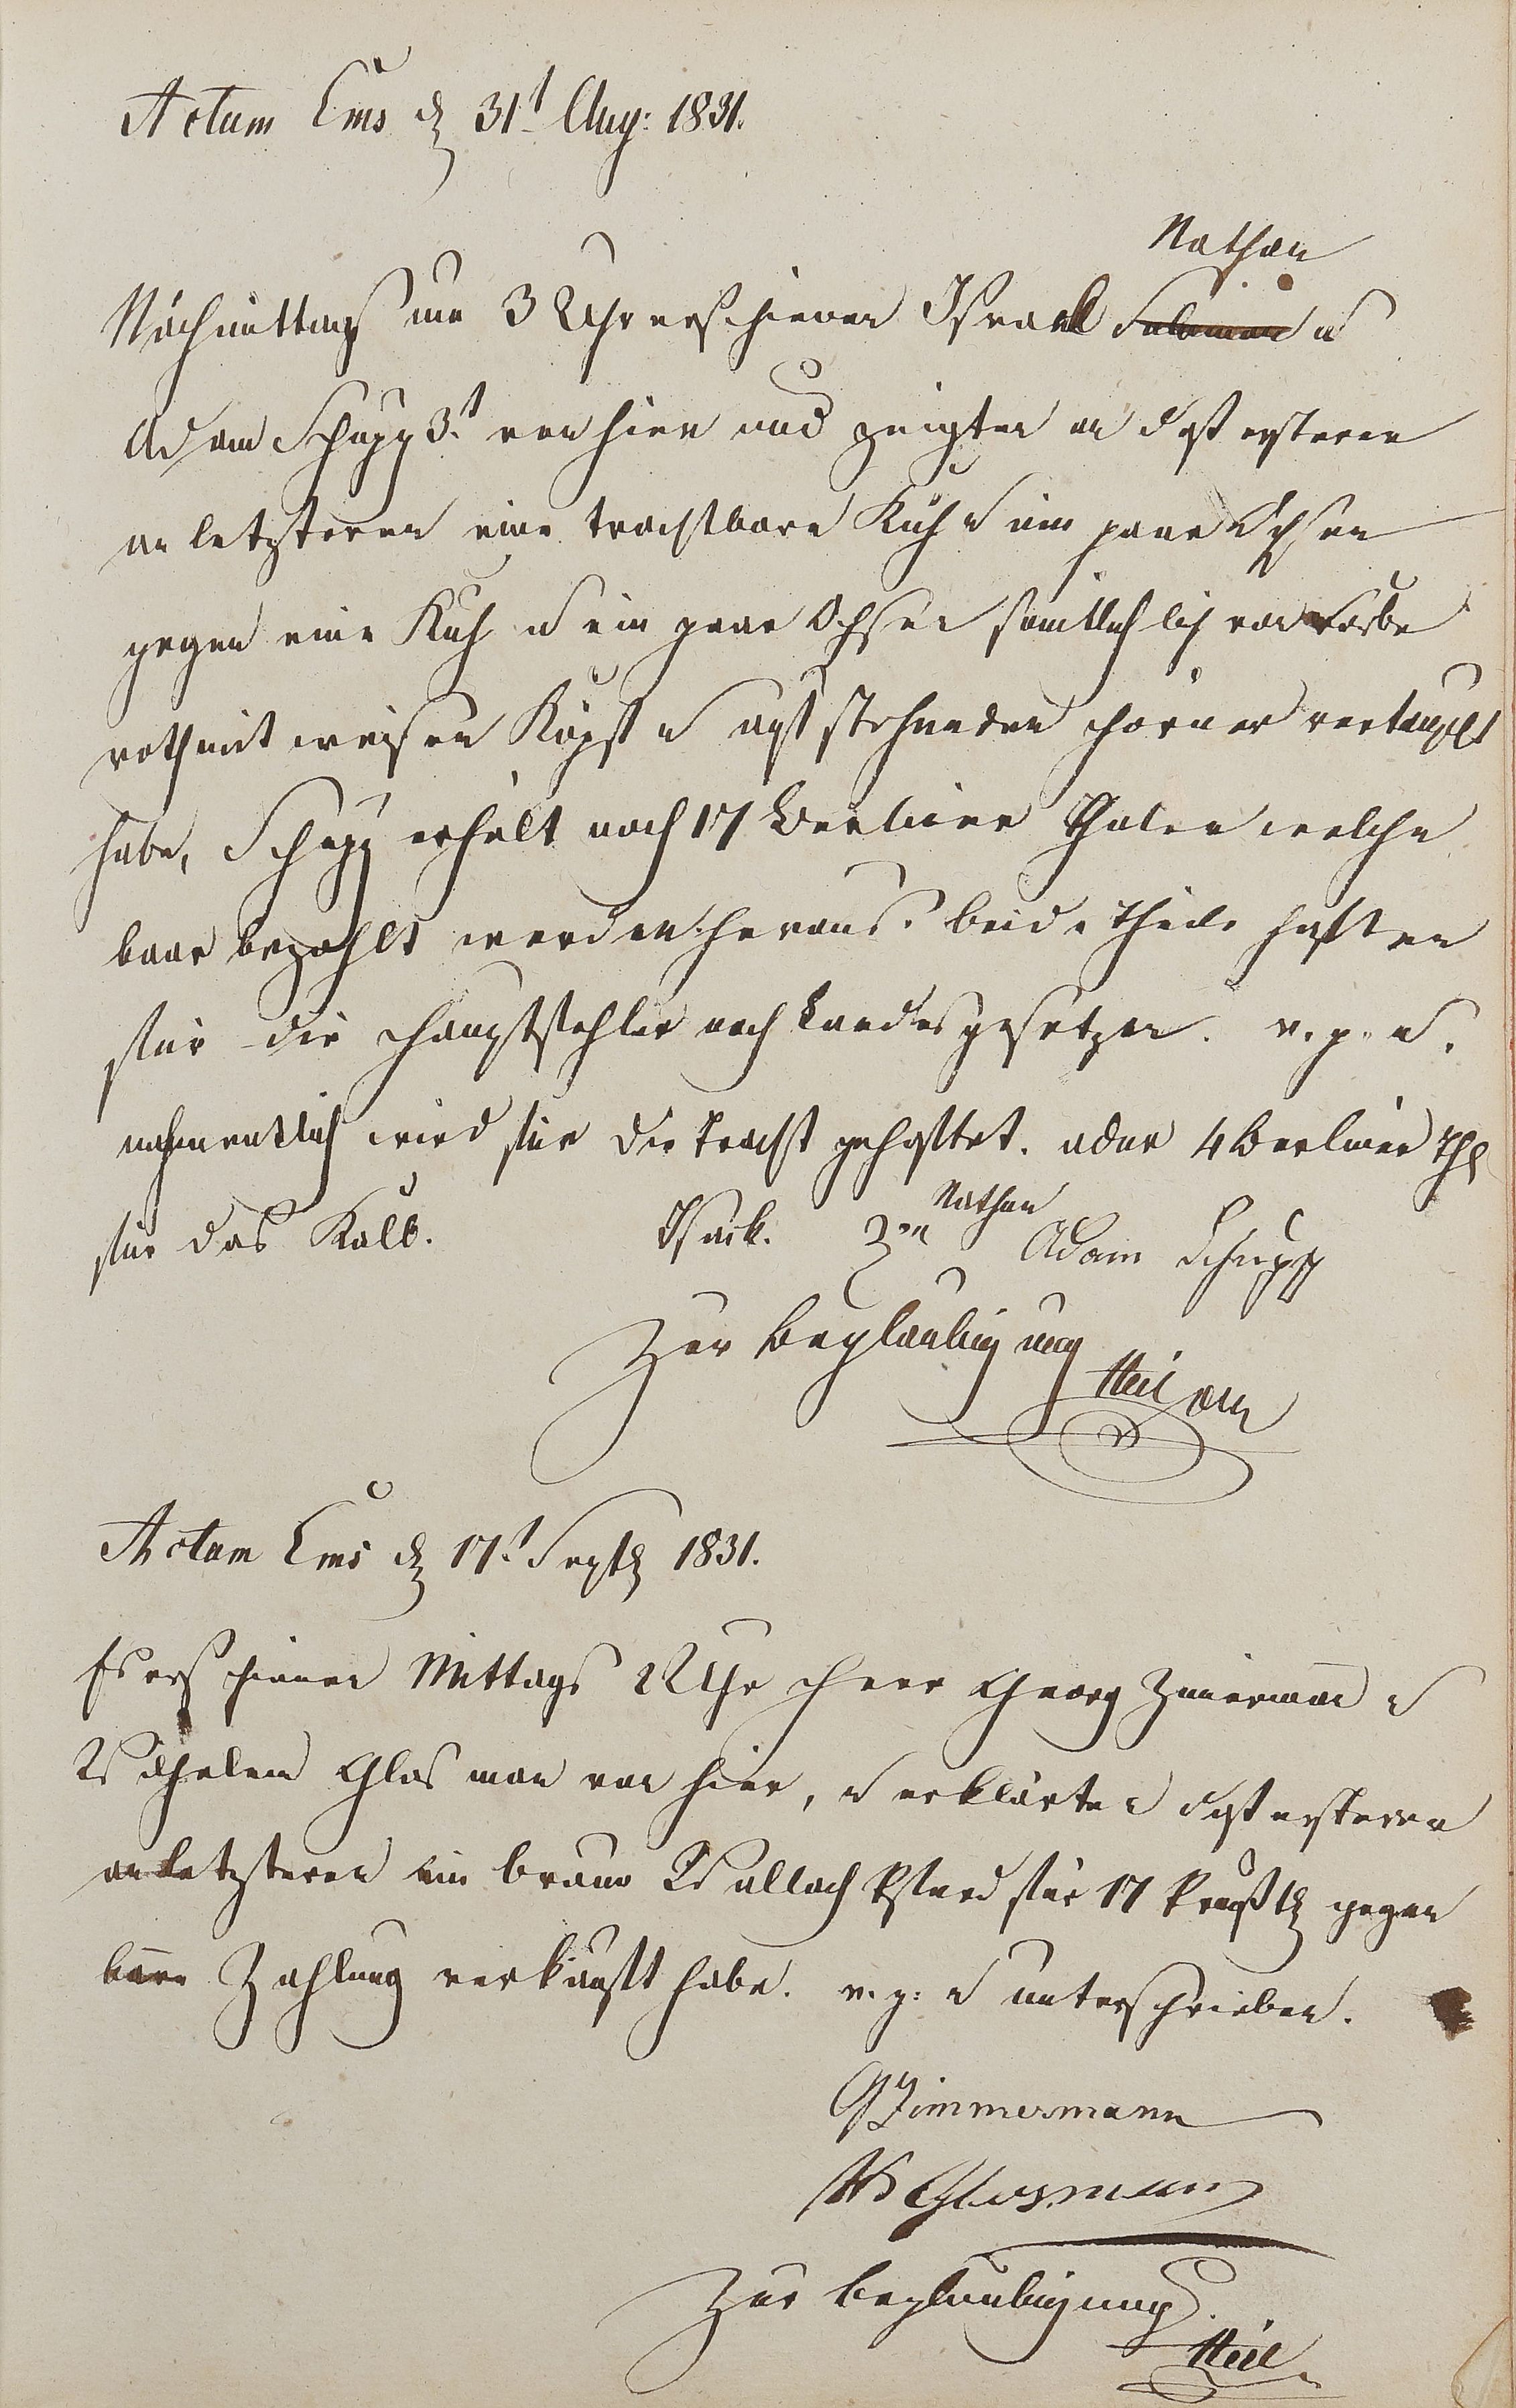 Actum Ems d 31t Aug: 1831.
Nathan
Nachmittags um 3 Uhr erschienen Israel Salomon u
Adam Schupp 3t von hier und zeigten an daß ersterer
an letzteren eine trachtbare Kuh u ein paar Ochsen
gegen eine Kuh u ein paar Ochsen sämtlich von Farbe
roth mit weisen Köpf u aufstehenden Hörner vertauscht
habe, Schupp erhält noch 17 Berliner Thaler welche
baar bezahlt werden heraus. beide Theile haften
für die Hauptfehler nach Landesgesetzen. v. g. u.
nahmentlich wird für die Tracht gehaftet. oder 4 Berliner Thl
für das Kalb. Isack. Nathan Adam Schupp
Zur Beglaubigung
Heil
Actum Ems d 17t Septb 1831.
Es erschienen Mittags 2 Uhr Herr Georg Zimerman u
Wilhelm Glasman von hier, u erklärten daß ersterer
an letzteren ein braun Wallach Pferd für 17 Preuß th gegen
baare Zahlung verkauft habe. v. g. u unterschrieben.
GZimmermann
W Glasmann
Zur Beglaubigung
Heil